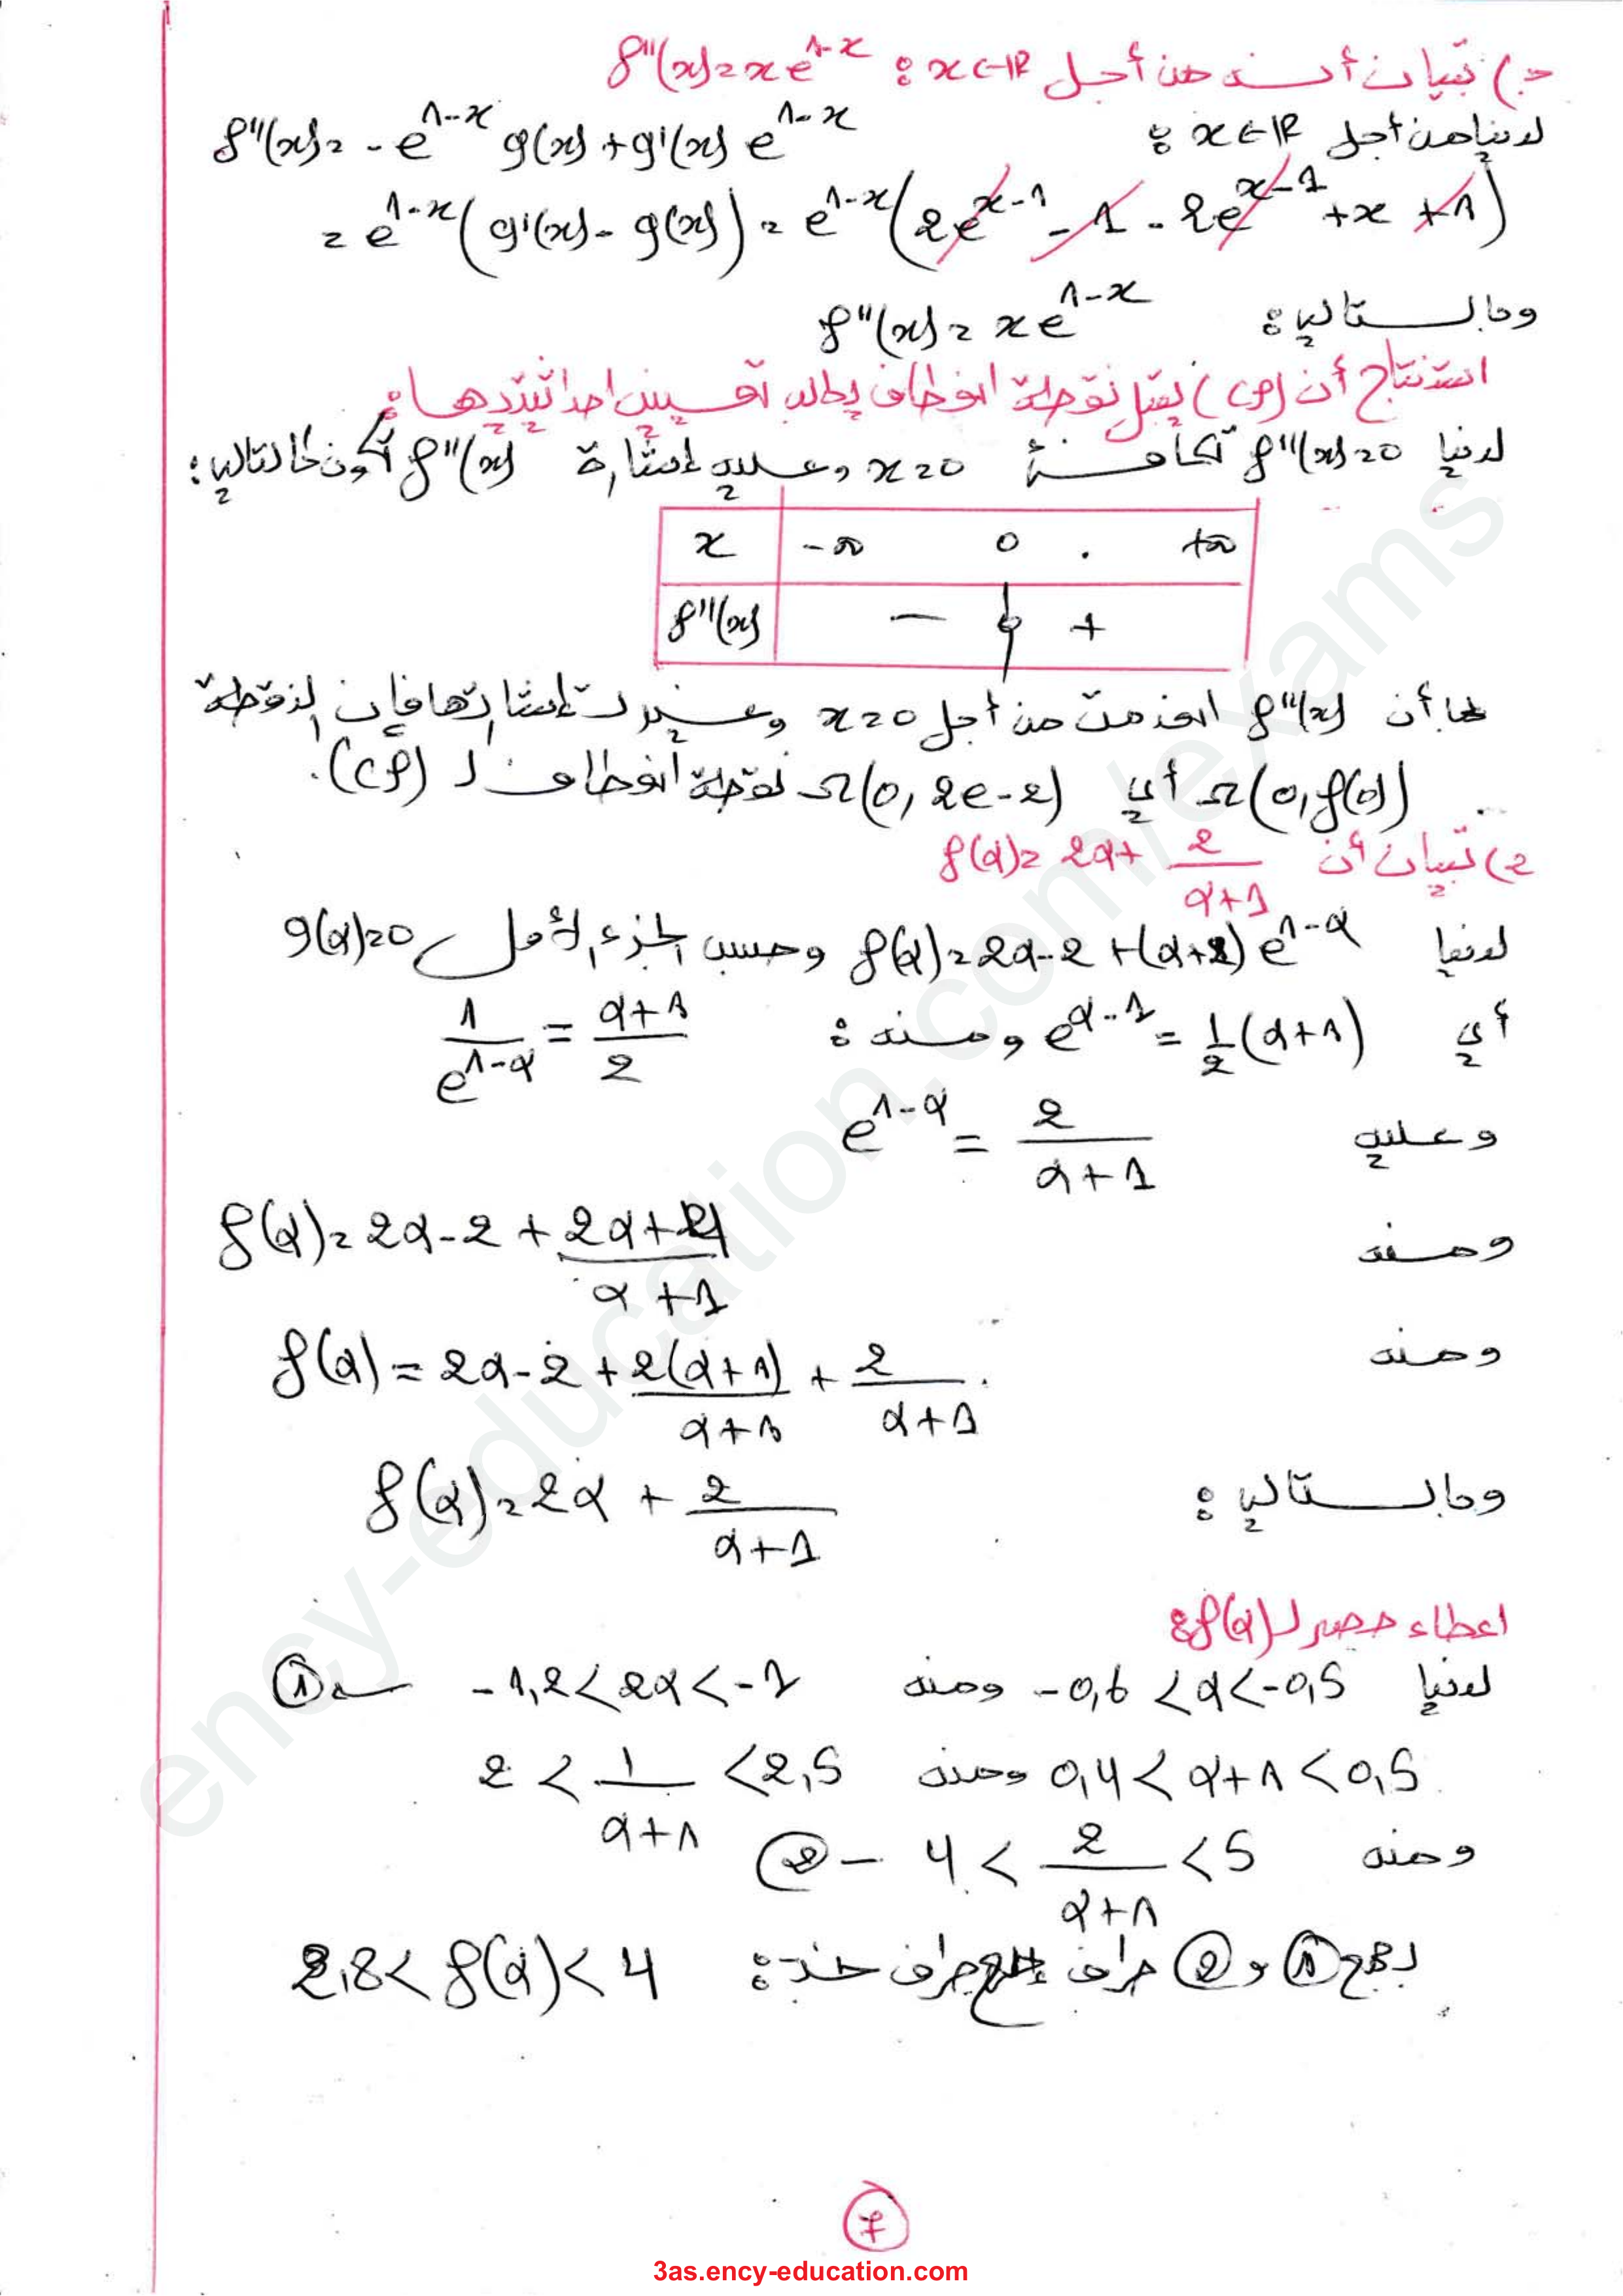 ج) تبيان أنه من أجل x∈ℝ : f''(x) = x e^{1-x}
لدينا من أجل x∈ℝ : f''(x) = -e^{1-x} g(x) + g'(x) e^{1-x}
= e^{1-x}(g'(x) - g(x)) = e^{1-x}(2e^{x-1} - 1 - 2e^{x-1} + x + 1)
وبالتالي : f''(x) = x e^{1-x}
استنتاج أن (Cf) يقبل نقطة انعطاف يطلب تعيين احداثييها :
لدينا f''(x)=0 تكافئ x=0 وعليه إشارة f''(x) تكون كالتالي :
x -∞ 0 +∞
f''(x) - 0 +
بما أن f''(x) انعدمت من أجل x=0 وغيرت إشارتها فإن النقطة
Ω(0, f(0)) أي Ω(0, 2e-2) نقطة انعطاف لـ (Cf).
2) تبيان أن f(α) = 2α + \frac{2}{α+1}
لدينا f(α) = 2α-2+(α+2)e^{1-α} وحسب الجزء الأول g(α)=0
أي e^{α-1} = \frac{1}{2}(α+1) ومنه : \frac{1}{e^{1-α}} = \frac{α+1}{2}
وعليه e^{1-α} = \frac{2}{α+1}
ومنه f(α) = 2α-2+\frac{2α+4}{α+1}
ومنه f(α) = 2α-2+\frac{2(α+1)}{α+1}+\frac{2}{α+1}
وبالتالي : f(α) = 2α + \frac{2}{α+1}
اعطاء حصر لـ f(α) :
لدينا -0,6 < α < -0,5 ومنه -1,2 < 2α < -1 — ①
0,4 < α+1 < 0,5 ومنه 2 < \frac{1}{α+1} < 2,5
ومنه 4 < \frac{2}{α+1} < 5 — ②
بجمع ① و ② طرف طرف نجد : 2,8 < f(α) < 4
7
3as.ency-education.com
ency-education.com/exams